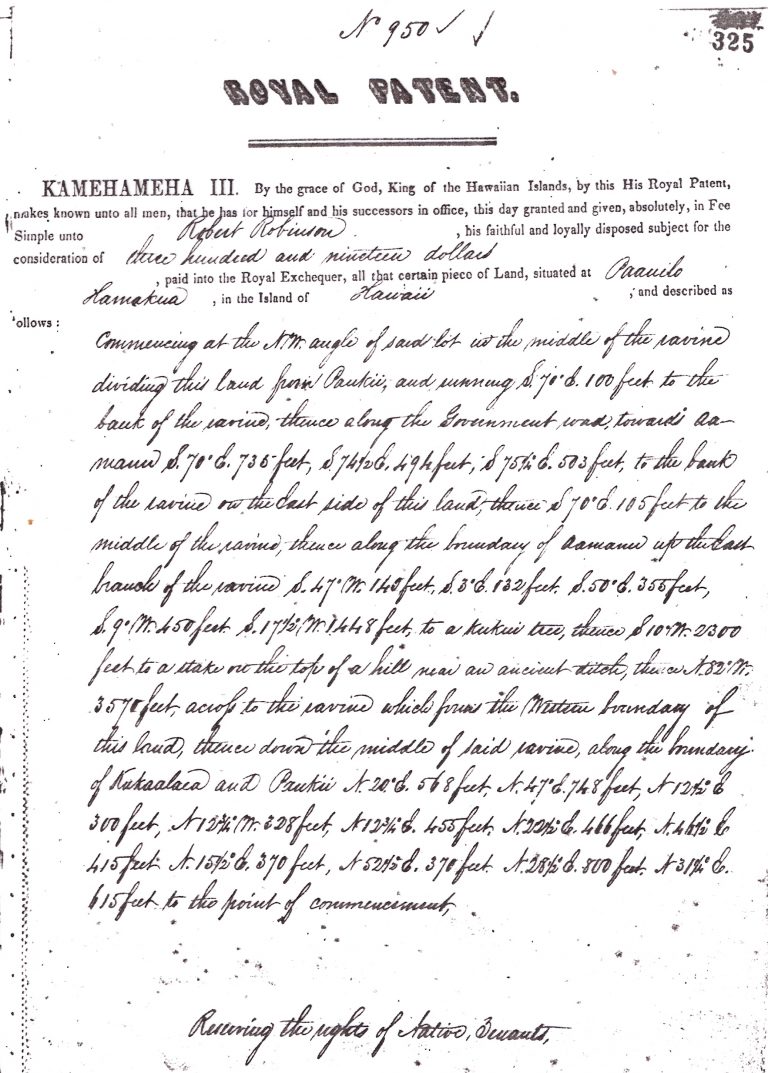 No 950
325
ROYAL PATENT.
KAMEHAMEHA III. By the grace of God, King of the Hawaiian Islands, by this His Royal Patent,
makes known unto all men, that he has for himself and his successors in office, this day granted and given, absolutely, in Fee
Simple unto Robert Robinson , his faithful and loyally disposed subject for the
consideration of three hundred and nineteen dollars
, paid into the Royal Exchequer, all that certain piece of Land, situated at Paauilo
Hamakua , in the Island of Hawaii , and described as
follows :
Commencing at the N.W. angle of said lot in the middle of the ravine
dividing this land from Paukii, and running S. 70° E. 100 feet to the
bank of the ravine, thence along the Government road, towards Aa-
manu S. 70° E. 735 feet, S 74½ E. 494 feet, S 75¼ E. 503 feet, to the bank
of the ravine on the East side of this land, thence S 70° E. 105 feet to the
middle of the ravine, thence along the boundary of Aamanu up the East
branch of the ravine S. 47° W. 140 feet, S. 3° E. 132 feet. S. 50° E. 355 feet,
S. 9° W. 450 feet S. 17½ W. 1448 feet, to a Kukui tree, thence S 10° W. 2300
feet to a stake on the top of a hill near an ancient ditch, thence N. 82° W.
3570 feet, across to the ravine which forms the Western boundary of
this land, thence down the middle of said ravine, along the boundary
of Kukaalaea and Paukii N. 20° E. 568 feet, N. 47° E. 748 feet, N 12½° E
300 feet, N 12¾° W. 328 feet, N 12¾ E. 455 feet, N. 22½ E. 466 feet, N. 46½ E
415 feet N. 15½° E. 370 feet, N 52½° E. 370 feet. N. 28½ E. 800 feet. N 31¼° E.
615 feet to the point of commencement,
Reserving the rights of Native Tenants,